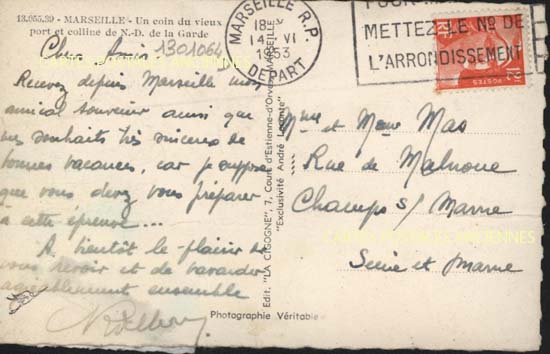 13.055.39 - MARSEILLE - Un coin du vieux
port et colline de N.-D. de la Garde
Cher Amis
1301064
Recevez depuis Marseille mon
amical souvenir ainsi que
mes souhaits très sincères de
bonnes vacances, car je suppose
que vous devez vous préparer
à cette épreuve...
A bientôt le plaisir de
vous revoir et de bavarder
agréablement ensemble
Edit. "LA CIGOGNE", 7, Cours d'Estienne-d'Orves MARSEILLE
"Exclusivité André Leconte"
Photographie Véritable
MARSEILLE R.P.
18H
14 - VI
1953
DEPART
METTEZ LE No DE
L'ARRONDISSEMENT
POSTES
12F
Mme et Mac
Rue de Malnoue
Champs s/ Marne
CARTES POSTALES ANCIENNES
Seine et Marne